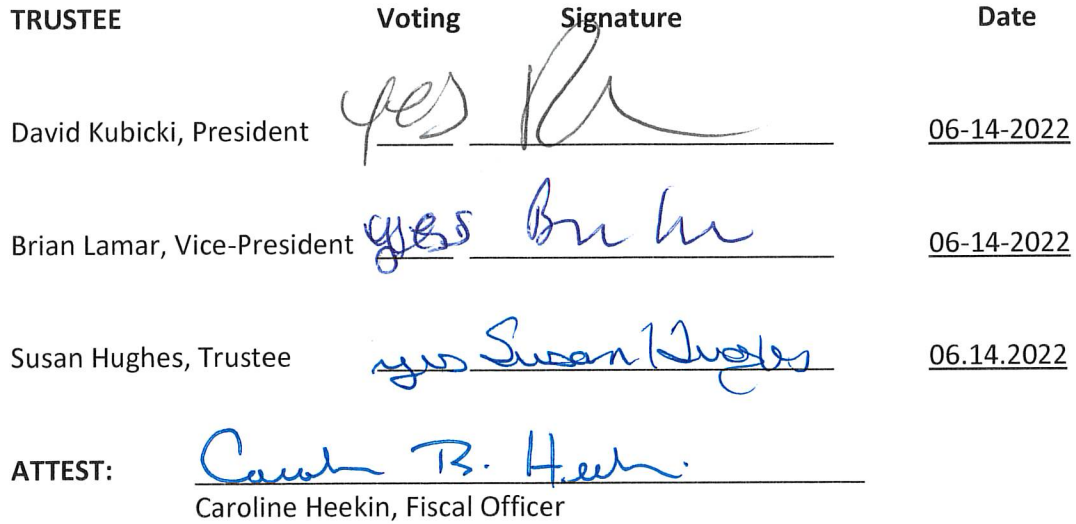 TRUSTEE Voting Signature Date
David Kubicki, President yes 06-14-2022
Brian Lamar, Vice-President yes 06-14-2022
Susan Hughes, Trustee yes Susan Hughes 06.14.2022
ATTEST: B.
Caroline Heekin, Fiscal Officer